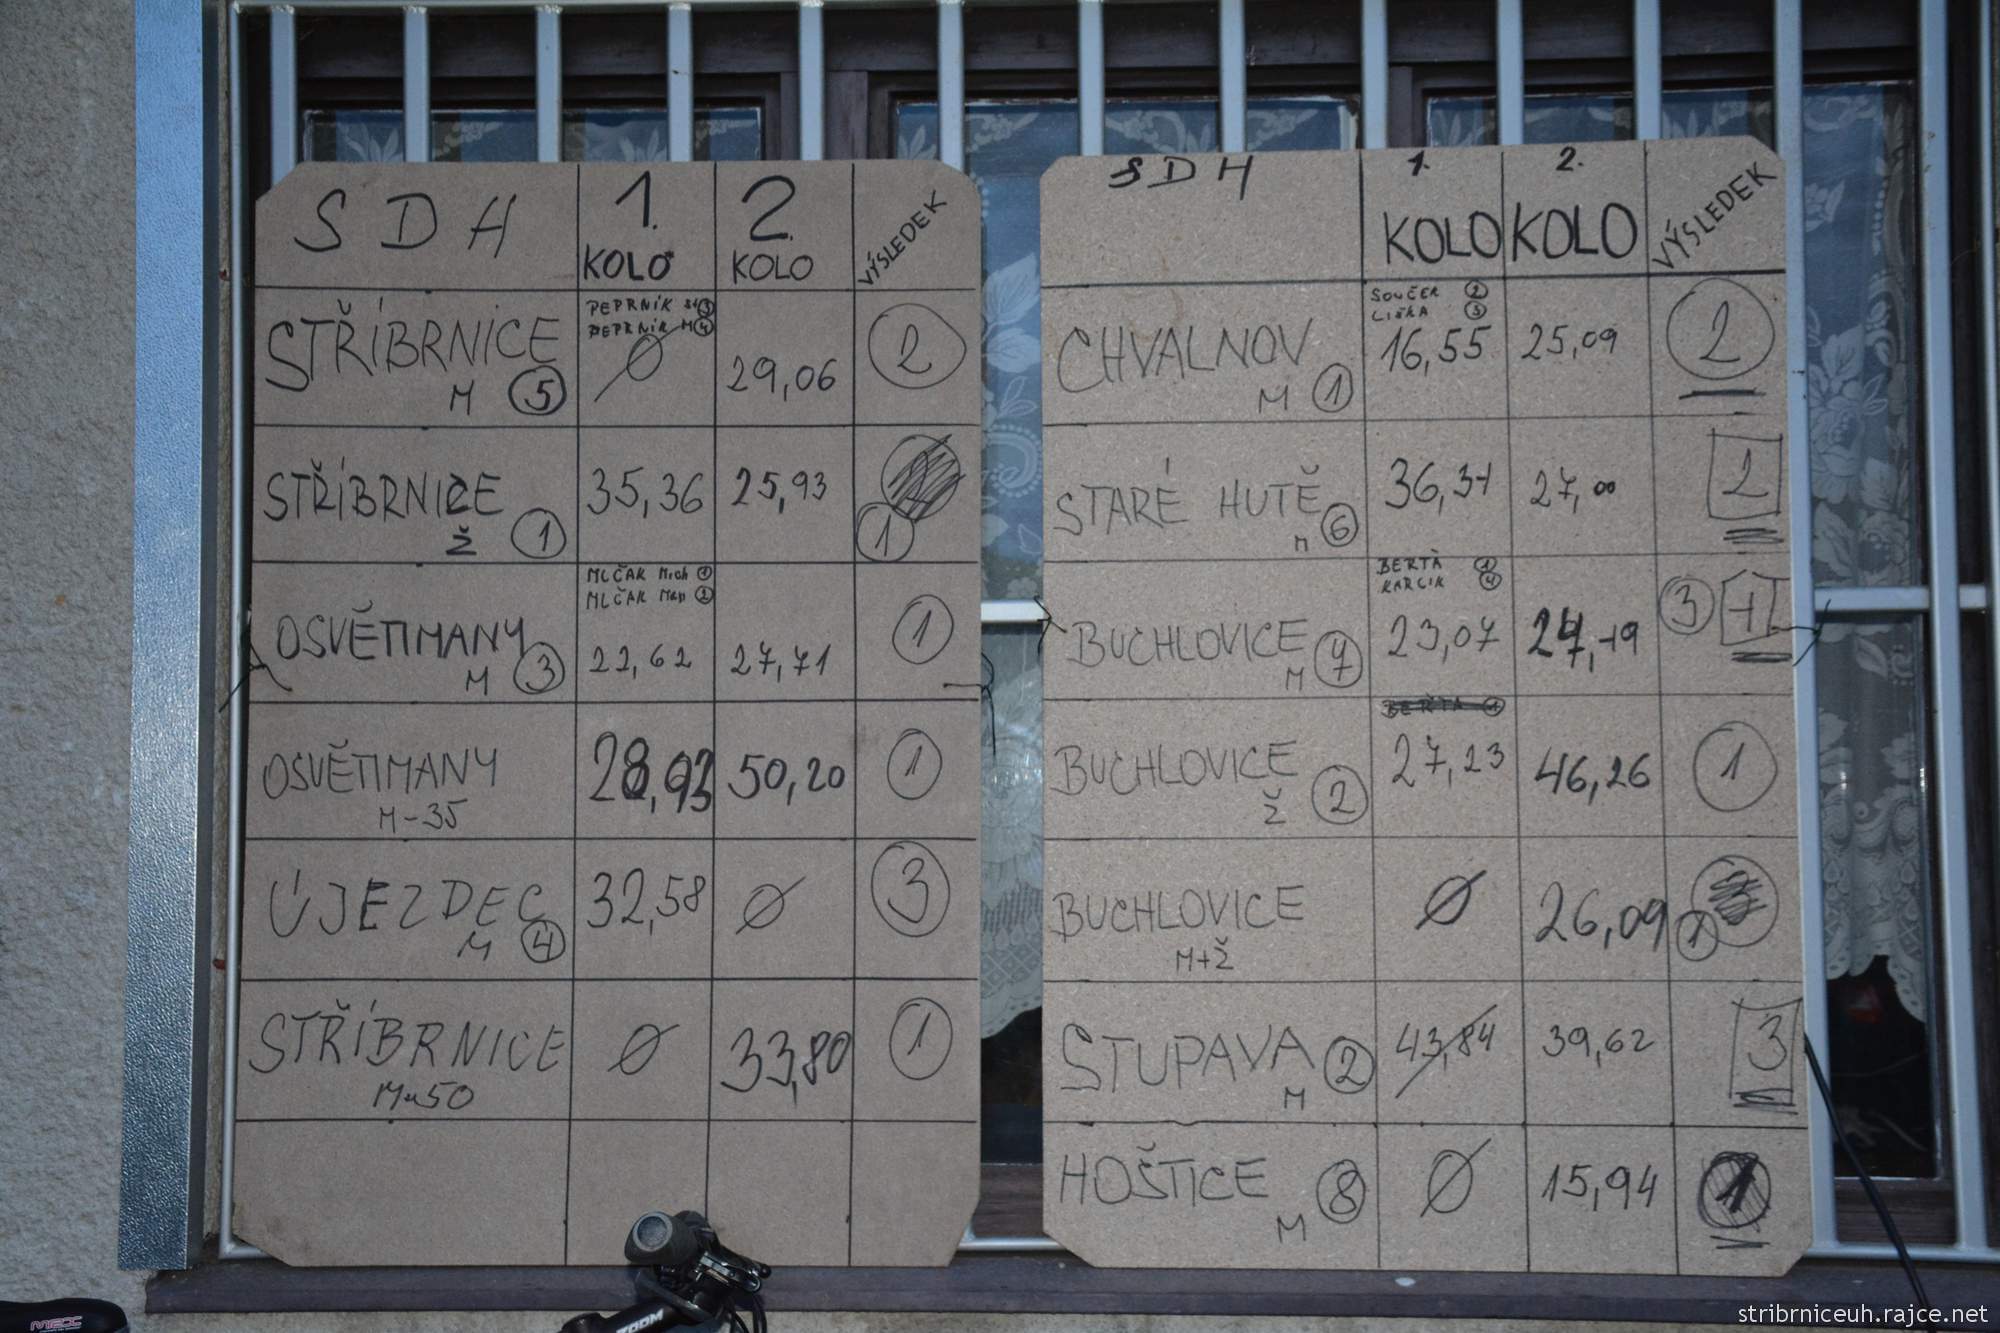 SDH 1. KOLO 2. KOLO VÝSLEDEK
PEPRNÍK ST 3
PEPRNÍK M 4
STŘÍBRNICE M 5 Ø 29,06 2
STŘÍBRNICE Ž 1 35,36 25,93 1
MLČAK Mich 1
MLČAK 2
OSVĚTIMANY M 3 22,62 27,71 1
OSVĚTIMANY M-35 28,93 50,20 1
ÚJEZDEC M 4 32,58 Ø 3
STŘÍBRNICE M 50 Ø 33,80 1
SDH 1. KOLO 2. KOLO VÝSLEDEK
SOUČEK 2
LIŠKA 3
CHVALNOV M 1 16,55 25,09 2
STARÉ HUTĚ M 6 36,31 27,00 2
BERTA 1
KARCIK 4
BUCHLOVICE M 7 23,07 24,19 3 1
BERTA 1
BUCHLOVICE Ž 2 27,23 46,26 1
BUCHLOVICE M+Ž Ø 26,09 1
STUPAVA M 2 43,84 39,62 3
HOŠTICE M 8 Ø 15,94 1
MEX
ZOOM
stribrniceuh.rajce.net